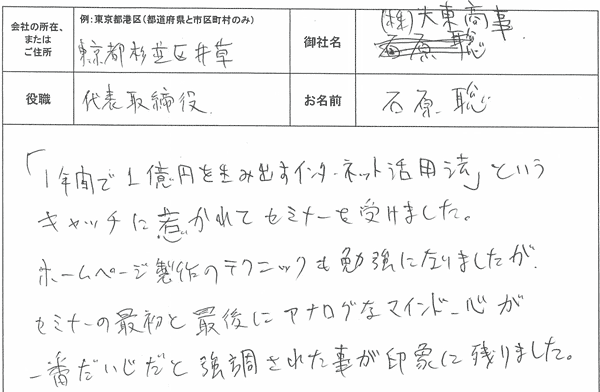 会社の所在、
または
ご住所
例:東京都港区(都道府県と市区町村のみ)
東京都杉並区井草
御社名
(株)大東商事
石原 聡
役職
代表取締役
お名前
石原 聡
「1年間で1億円を生み出すインターネット活用法」という
キャッチに惹かれてセミナーを受けました。
ホームページ製作のテクニックも勉強に在りましたが
セミナーの最初と最後にアナログなマインド、心が
一番だいじだと強調された事が印象に残りました。